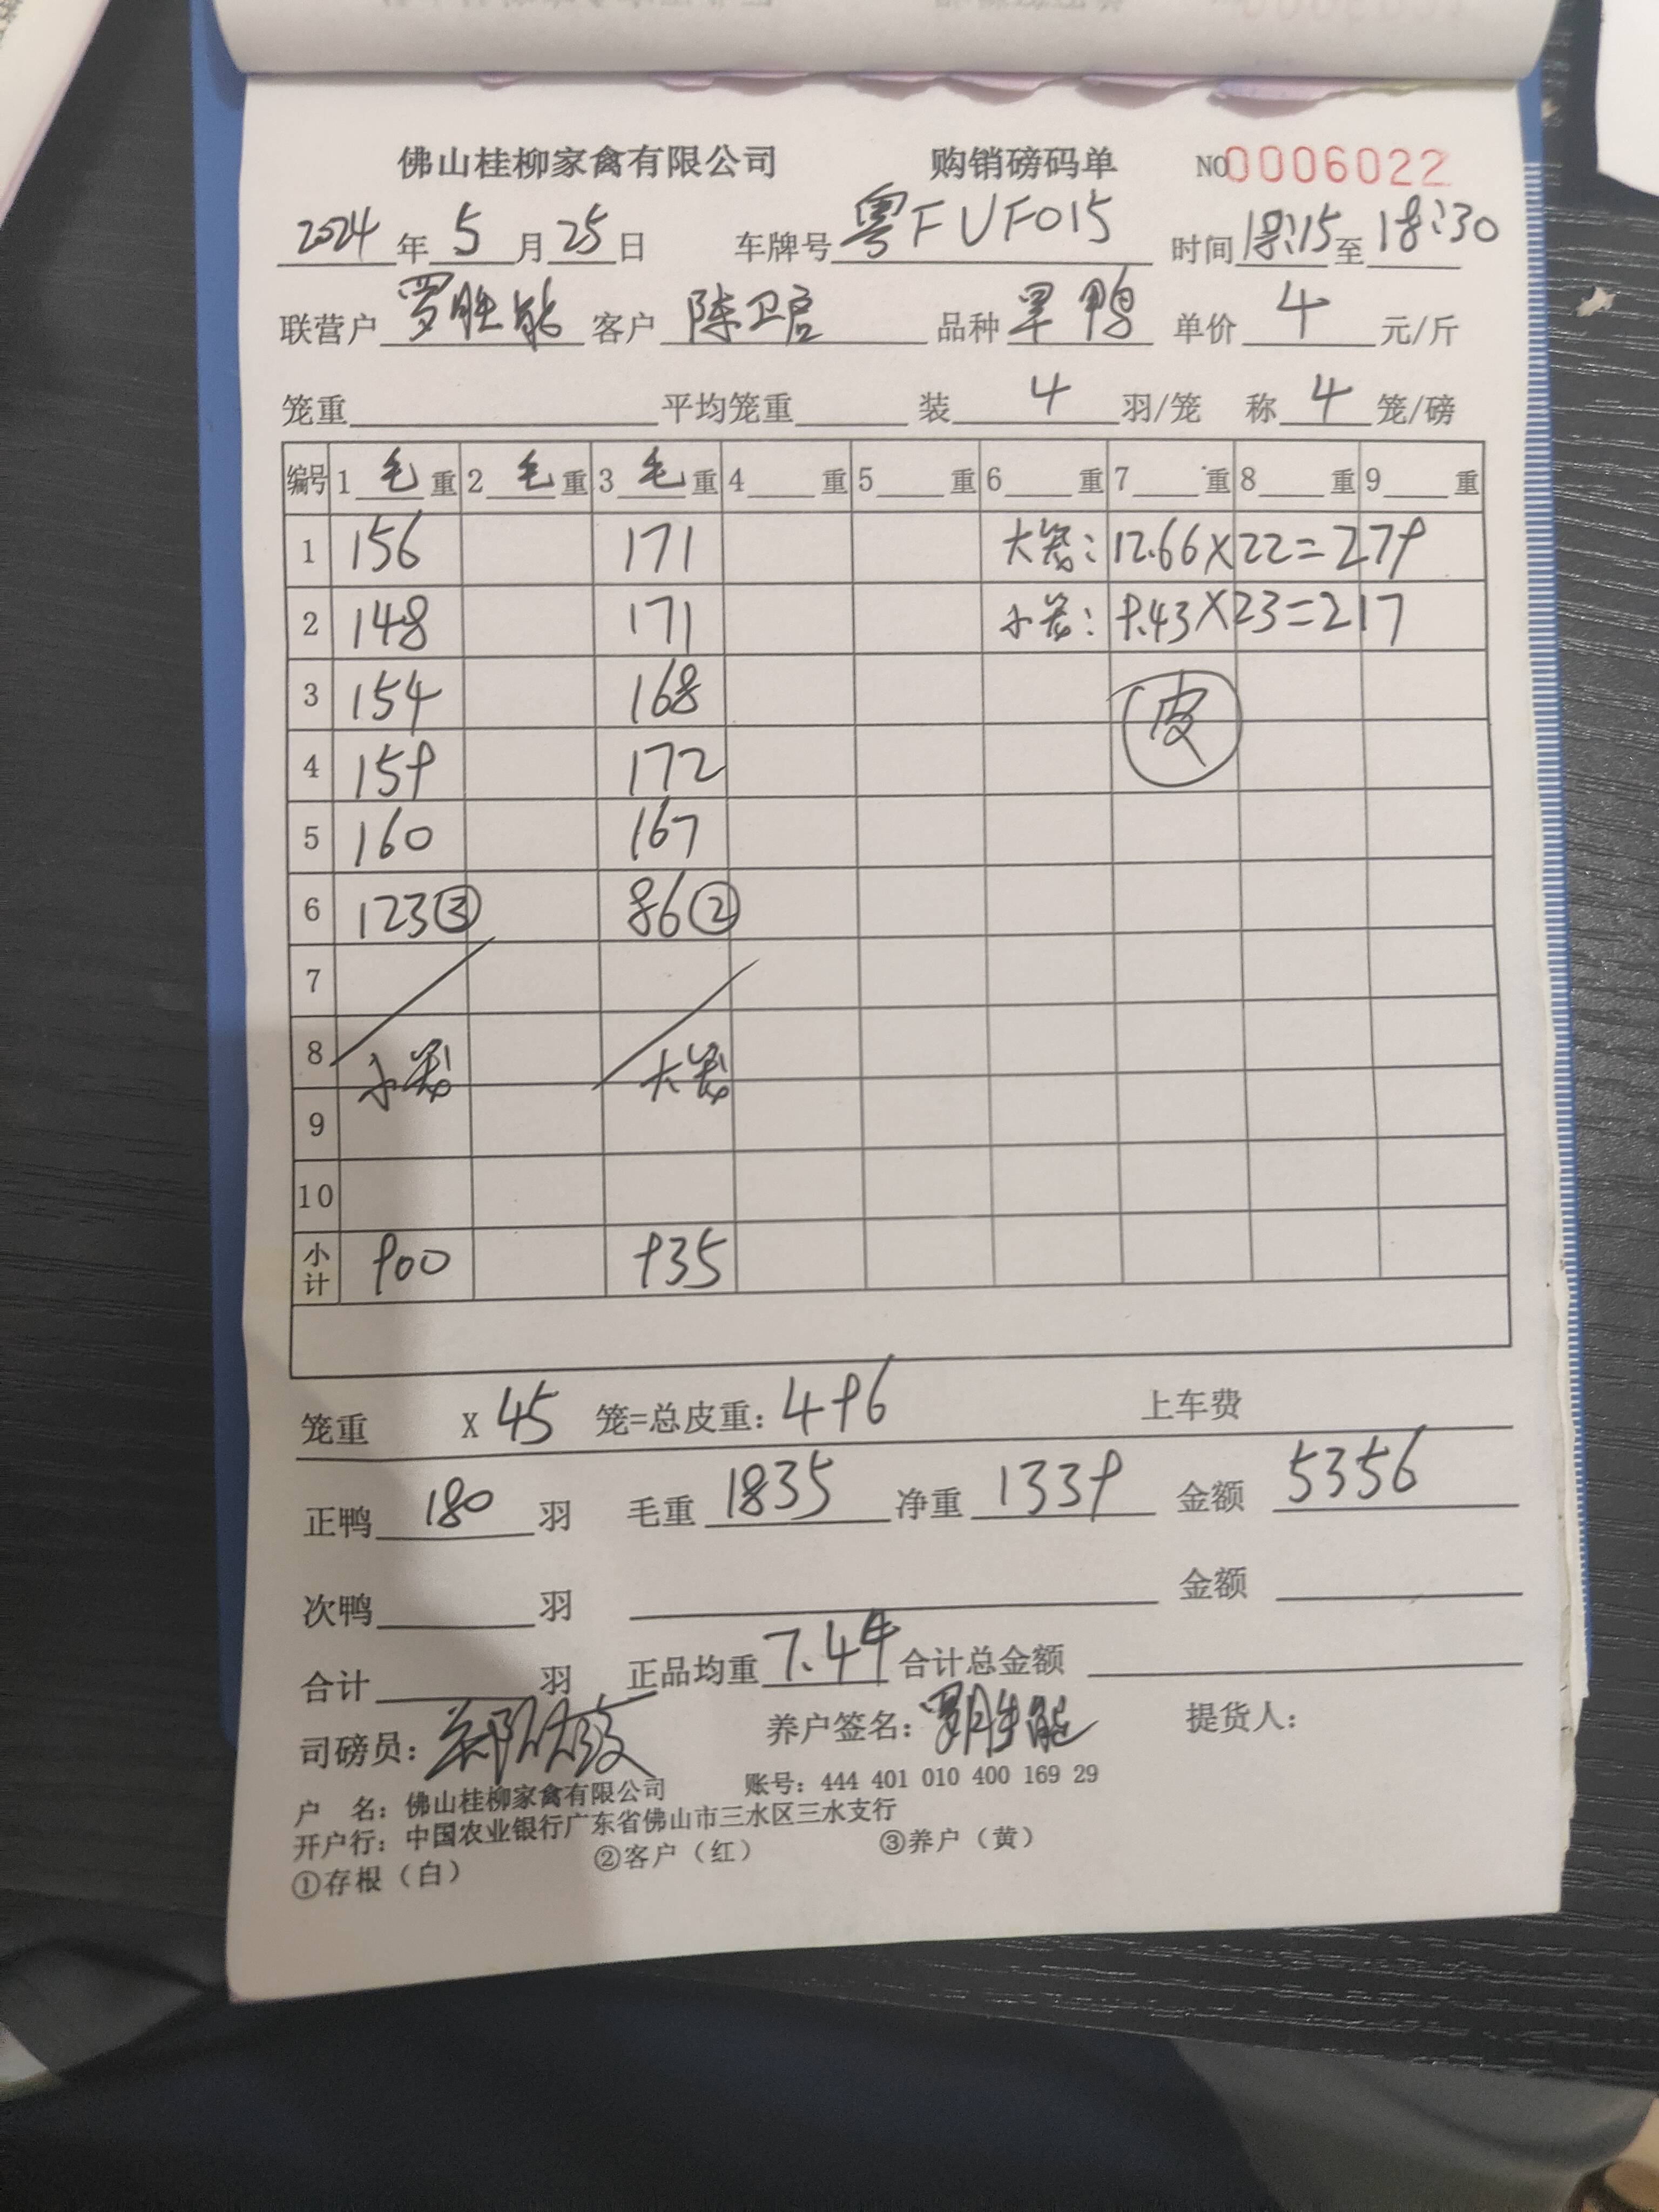 佛山桂柳家禽有限公司 购销磅码单 NO0006022
2024年5月25日 车牌号粤FUF015 时间18:15至18:30
联营户罗胜能 客户陈卫启 品种旱鸭 单价4元/斤
笼重 平均笼重 装4羽/笼 称4笼/磅
编号 1毛重 2毛重 3毛重 4重 5重 6重 7重 8重 9重
1 156 171 大笼:12.66X22=279
2 148 171 小笼:9.43X23=217
3 154 168 皮
4 159 172
5 160 167
6 123③ 86②
7
8 小笼 大笼
9
10
小计 900 935
笼重 X45 笼=总皮重:496 上车费
正鸭180羽 毛重1835 净重1339 金额5356
次鸭 羽 金额
合计 羽 正品均重7.44 合计总金额
司磅员: 养户签名:罗胜能 提货人:
户 名:佛山桂柳家禽有限公司 账号:444 401 010 400 169 29
开户行:中国农业银行广东省佛山市三水区三水支行
①存根(白) ②客户(红) ③养户(黄)